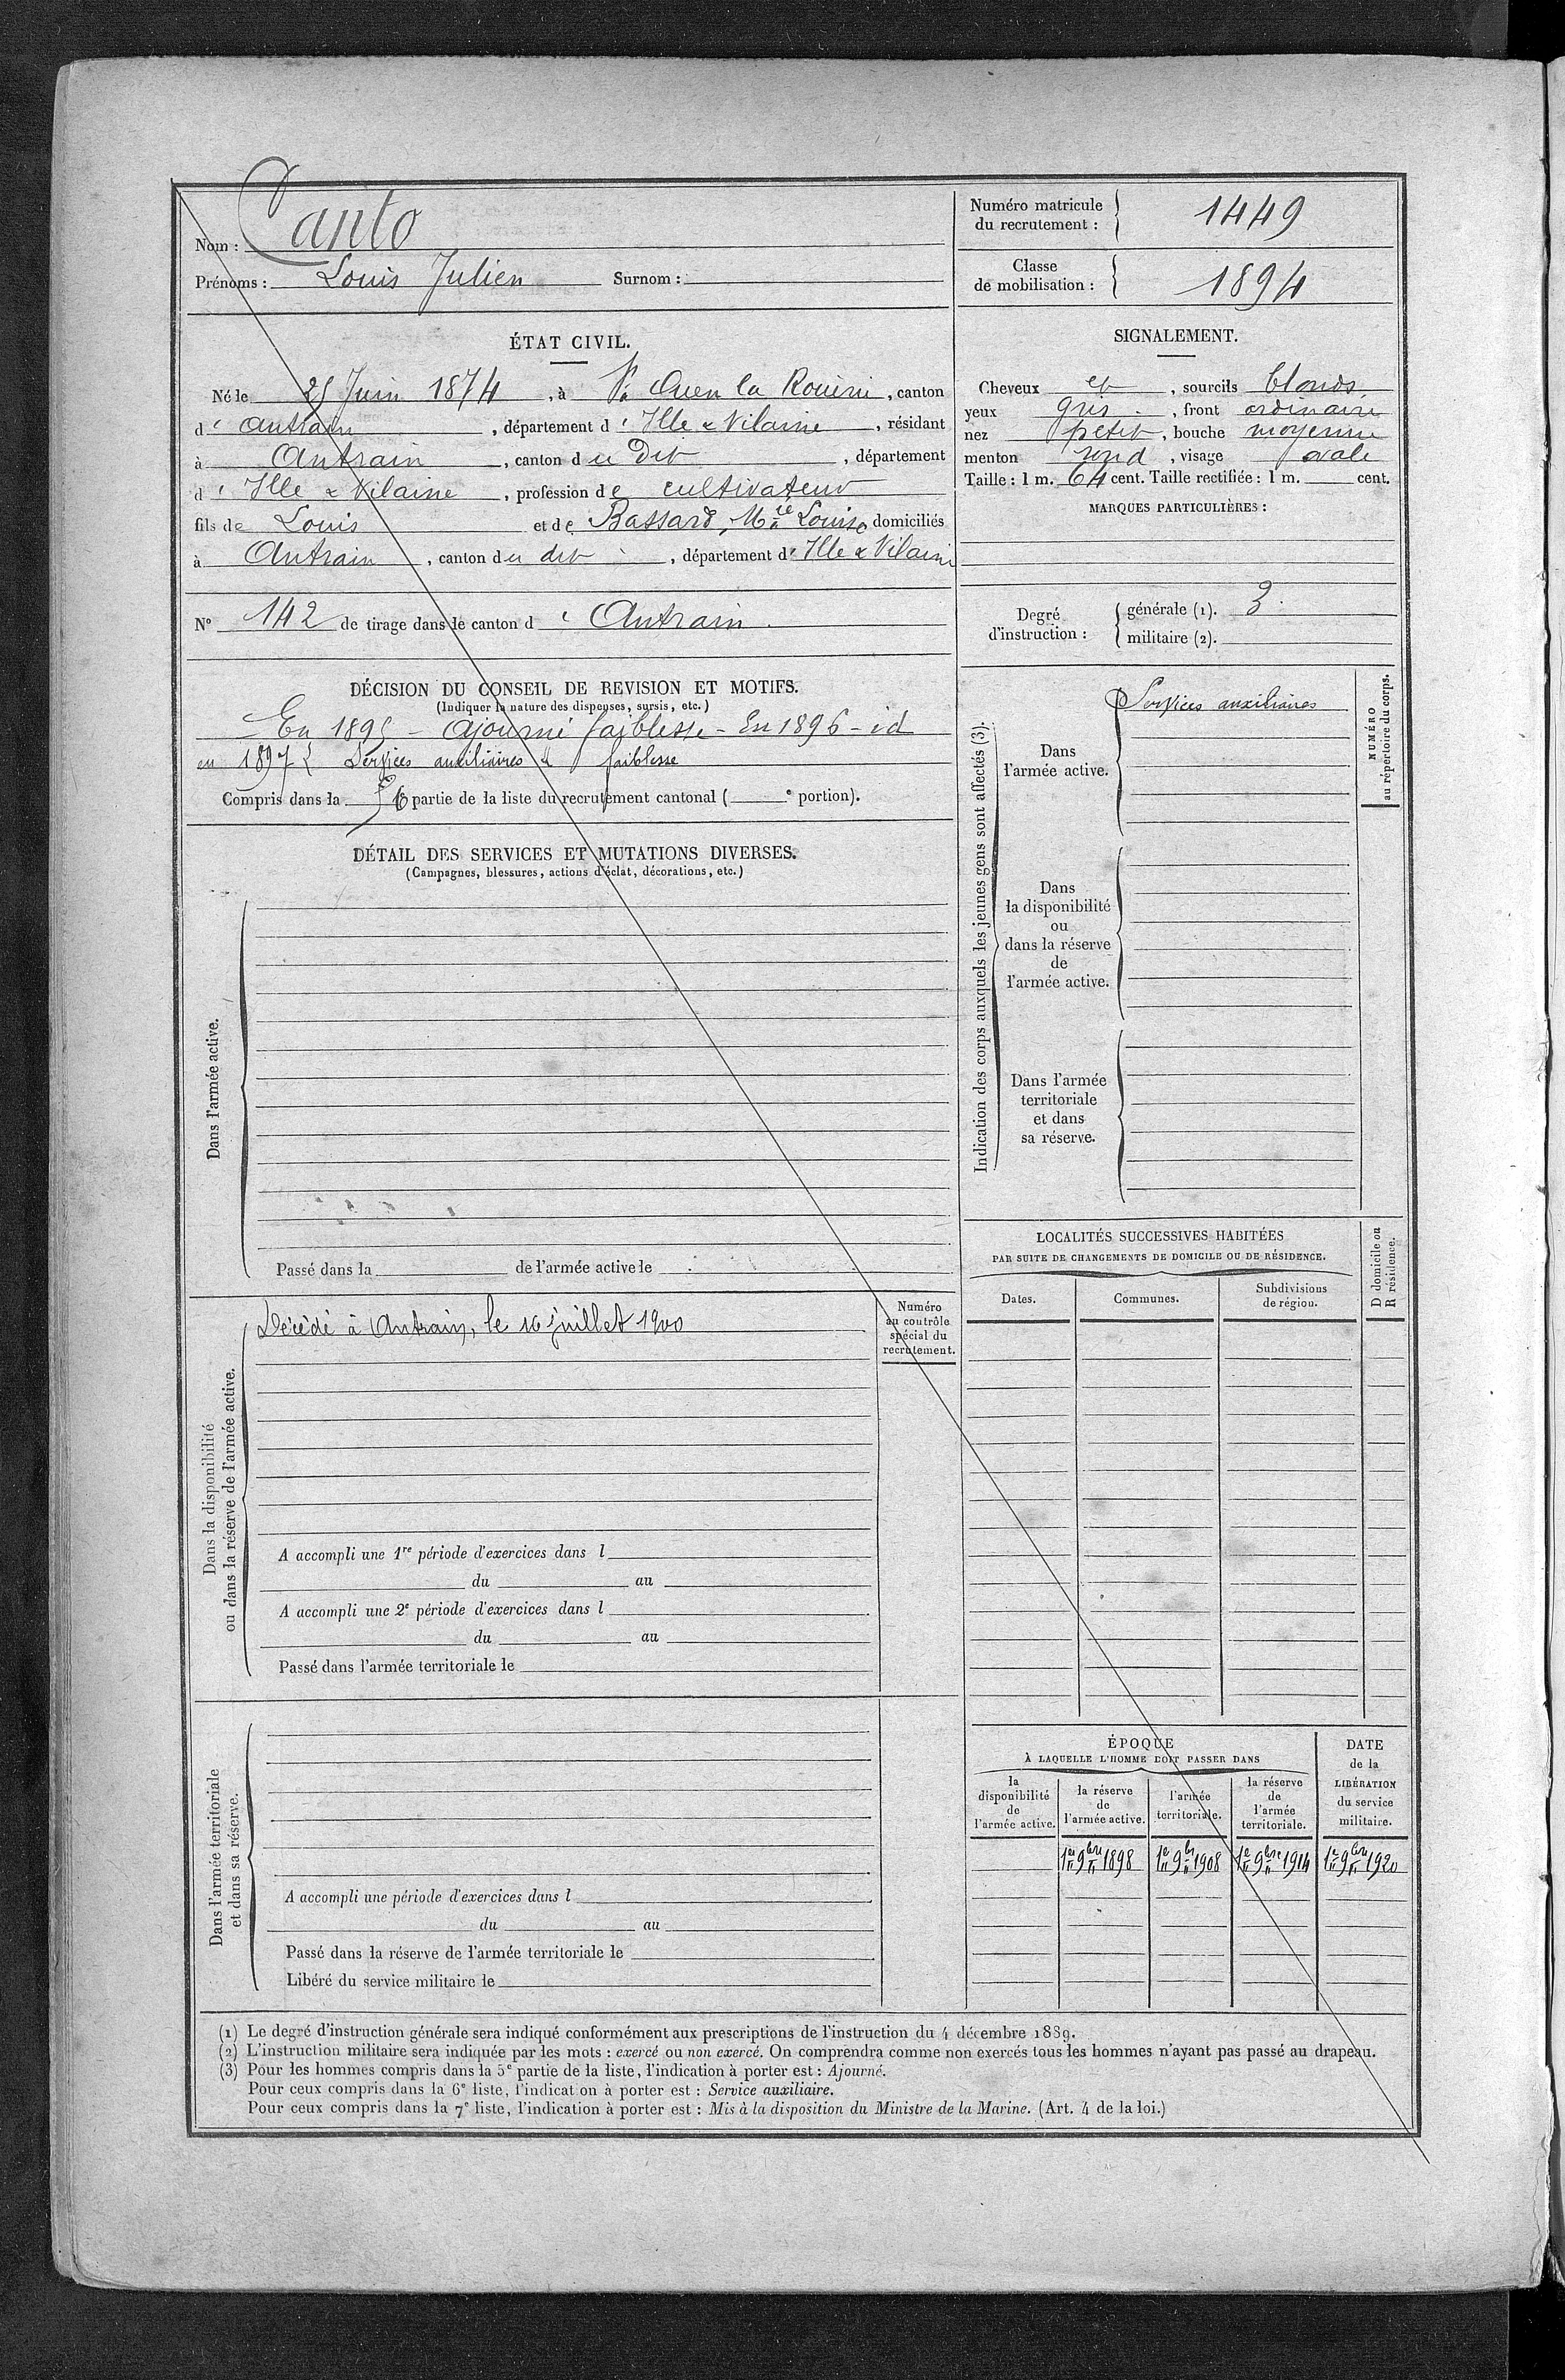 Nom : Canto
Prénoms : Louis Julien Surnom :
Numéro matricule du recrutement : 1449
Classe de mobilisation : 1894
ÉTAT CIVIL.
Né le 25 Juin 1874, à St Ouen la Rouërie, canton
d' Antrain, département d' Ille & Vilaine, résidant
à Antrain, canton du Dit, département
d' Ille & Vilaine, profession de cultivateur
fils de Louis et de Bassard, Mie Louise domiciliés
à Antrain, canton du dit, département d' Ille & Vilaine
N° 142 de tirage dans le canton d' Antrain.
SIGNALEMENT.
Cheveux et, sourcils blonds
yeux gris, front ordinaire
nez petit, bouche moyenne
menton rond, visage ovale
Taille : 1 m. 64 cent. Taille rectifiée : 1 m. cent.
MARQUES PARTICULIÈRES :
Degré d'instruction :
générale (1). 3
militaire (2).
DÉCISION DU CONSEIL DE REVISION ET MOTIFS.
(Indiquer la nature des dispenses, sursis, etc.)
En 1895 - ajourné faiblesse - En 1896 - id
en 1897 Services auxiliaires faiblesse
Compris dans la 6 partie de la liste du recrutement cantonal ( e portion).
DÉTAIL DES SERVICES ET MUTATIONS DIVERSES.
(Campagnes, blessures, actions d'éclat, décorations, etc.)
Dans l'armée active.
Passé dans la de l'armée active le
Indication des corps auxquels les jeunes gens sont affectés (3).
Dans
l'armée active.
Services auxiliaires
NUMÉRO
au répertoire du corps.
Dans
la disponibilité
ou
dans la réserve
de
l'armée active.
Dans l'armée
territoriale
et dans
sa réserve.
Dans la disponibilité
ou dans la réserve de l'armée active.
Décédé à Antrain, le 16 juillet 1900
Numéro
au contrôle
spécial du
recrutement.
A accompli une 1re période d'exercices dans l
du au
A accompli une 2e période d'exercices dans l
du au
Passé dans l'armée territoriale le
LOCALITÉS SUCCESSIVES HABITÉES
PAR SUITE DE CHANGEMENTS DE DOMICILE OU DE RÉSIDENCE.
Dates. Communes. Subdivisions de région.
D domicile ou
R résidence.
Dans l'armée territoriale
et dans sa réserve.
A accompli une période d'exercices dans l
du au
Passé dans la réserve de l'armée territoriale le
Libéré du service militaire le
ÉPOQUE
À LAQUELLE L'HOMME DOIT PASSER DANS
la disponibilité de l'armée active.
la réserve de l'armée active.
l'armée territoriale.
la réserve de l'armée territoriale.
DATE de la LIBÉRATION du service militaire.
1er 9bre 1898 1er 9bre 1908 1er 9bre 1914 1er 9bre 1920
(1) Le degré d'instruction générale sera indiqué conformément aux prescriptions de l'instruction du 4 décembre 1889.
(2) L'instruction militaire sera indiquée par les mots : exercé ou non exercé. On comprendra comme non exercés tous les hommes n'ayant pas passé au drapeau.
(3) Pour les hommes compris dans la 5e partie de la liste, l'indication à porter est : Ajourné.
Pour ceux compris dans la 6e liste, l'indication à porter est : Service auxiliaire.
Pour ceux compris dans la 7e liste, l'indication à porter est : Mis à la disposition du Ministre de la Marine. (Art. 4 de la loi.)